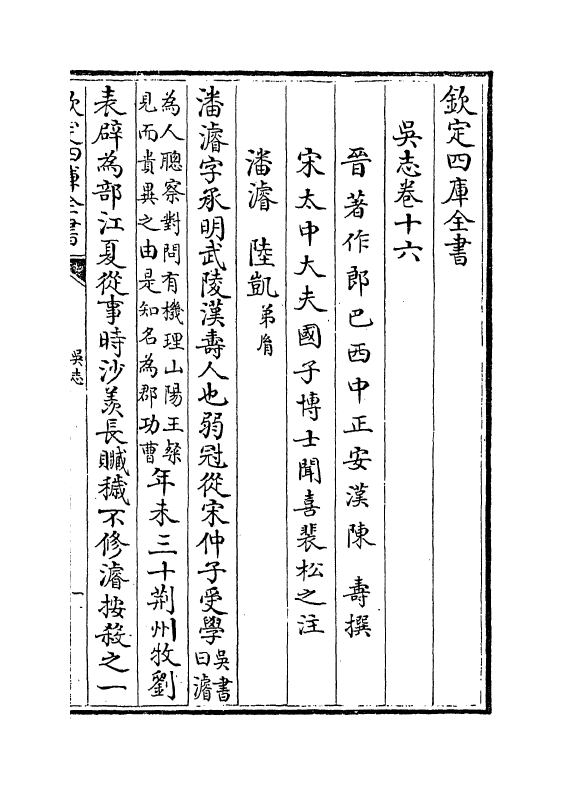 欽定四庫全書
吳志卷十六
晉著作郎巴西中正安漢陳壽撰
宋太中大夫國子博士聞喜裴松之注
潘濬 陸凱弟胤
潘濬字承明武陵漢壽人也弱冠從宋仲子受學吳書曰濬
為人聰察對問有機理山陽王粲見而貴異之由是知名為郡功曹年未三十荊州牧劉
表辟為部江夏從事時沙羨長贓穢不修濬按殺之一
欽定四庫全書
吳志
一